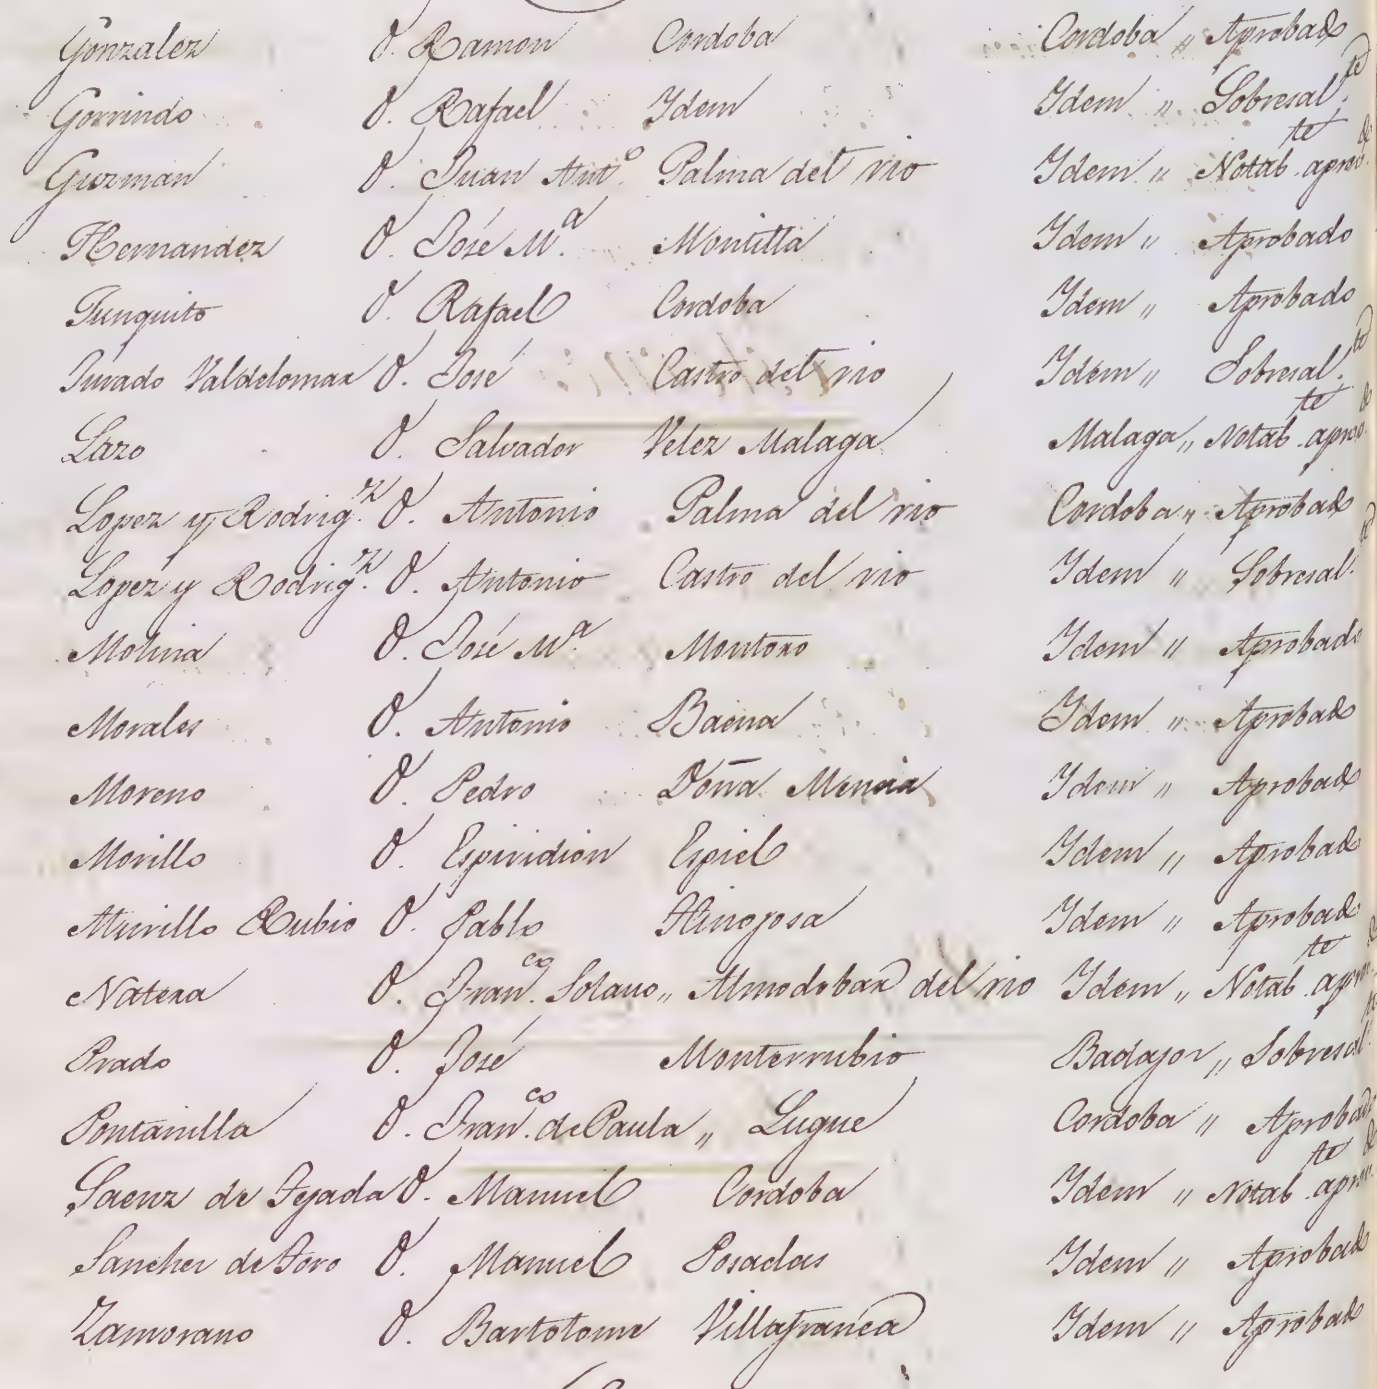 Gonzalez D. Ramon Cordoba Cordoba „ Aprobado
Gorrindo D. Rafael Ydem Ydem „ Sobresal.te
Guzman D. Juan Ant.o Palma del rio Ydem „ Notab.te aprov.do
Hernandez D. José M.a Montilla Ydem „ Aprobado
Junquito D. Rafael Cordoba Ydem „ Aprobado
Jurado Valdelomar D. José Castro del rio Ydem „ Sobresal.te
Lazo D. Salvador Velez Malaga Malaga „ Notab.te aprov.do
Lopez y Rodrig.z D. Antonio Palma del rio Cordoba „ Aprobado
Lopez y Rodrig.z D. Antonio Castro del rio Ydem „ Sobresal.te
Molina D. José M.a Montoro Ydem „ Aprobado
Morales D. Antonio Baena Ydem „ Aprobado
Moreno D. Pedro Doña Mencia Ydem „ Aprobado
Morillo D. Espiridion Espiel Ydem „ Aprobado
Murillo Rubio D. Pablo Hinojosa Ydem „ Aprobado
Natera D. Fran.co Solano „ Almodobar del rio Ydem „ Notab.te aprov.do
Prado D. José Monterrubio Badajoz „ Sobresal.te
Pontanilla D. Fran.co de Paula „ Luque Cordoba „ Aprobado
Saenz de Tejada D. Manuel Cordoba Ydem „ Notab.te aprov.do
Sanchez de Toro D. Manuel Posadas Ydem „ Aprobado
Zamorano D. Bartolome Villafranca Ydem „ Aprobado